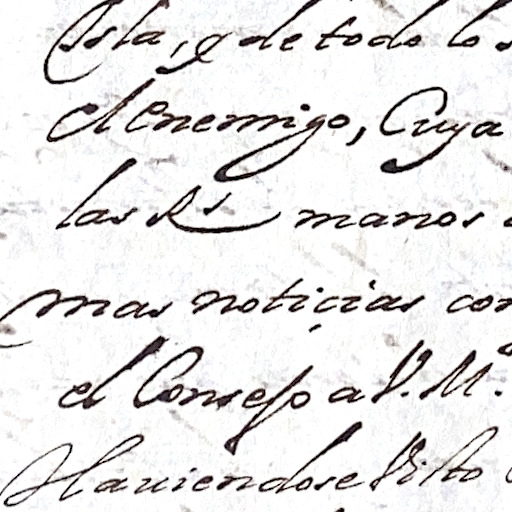 Isla, q de todo lo
el enemigo, Cuya
las Rs manos
mas noticias con
el Consejo a V. Mo.
Hauiendose Visto